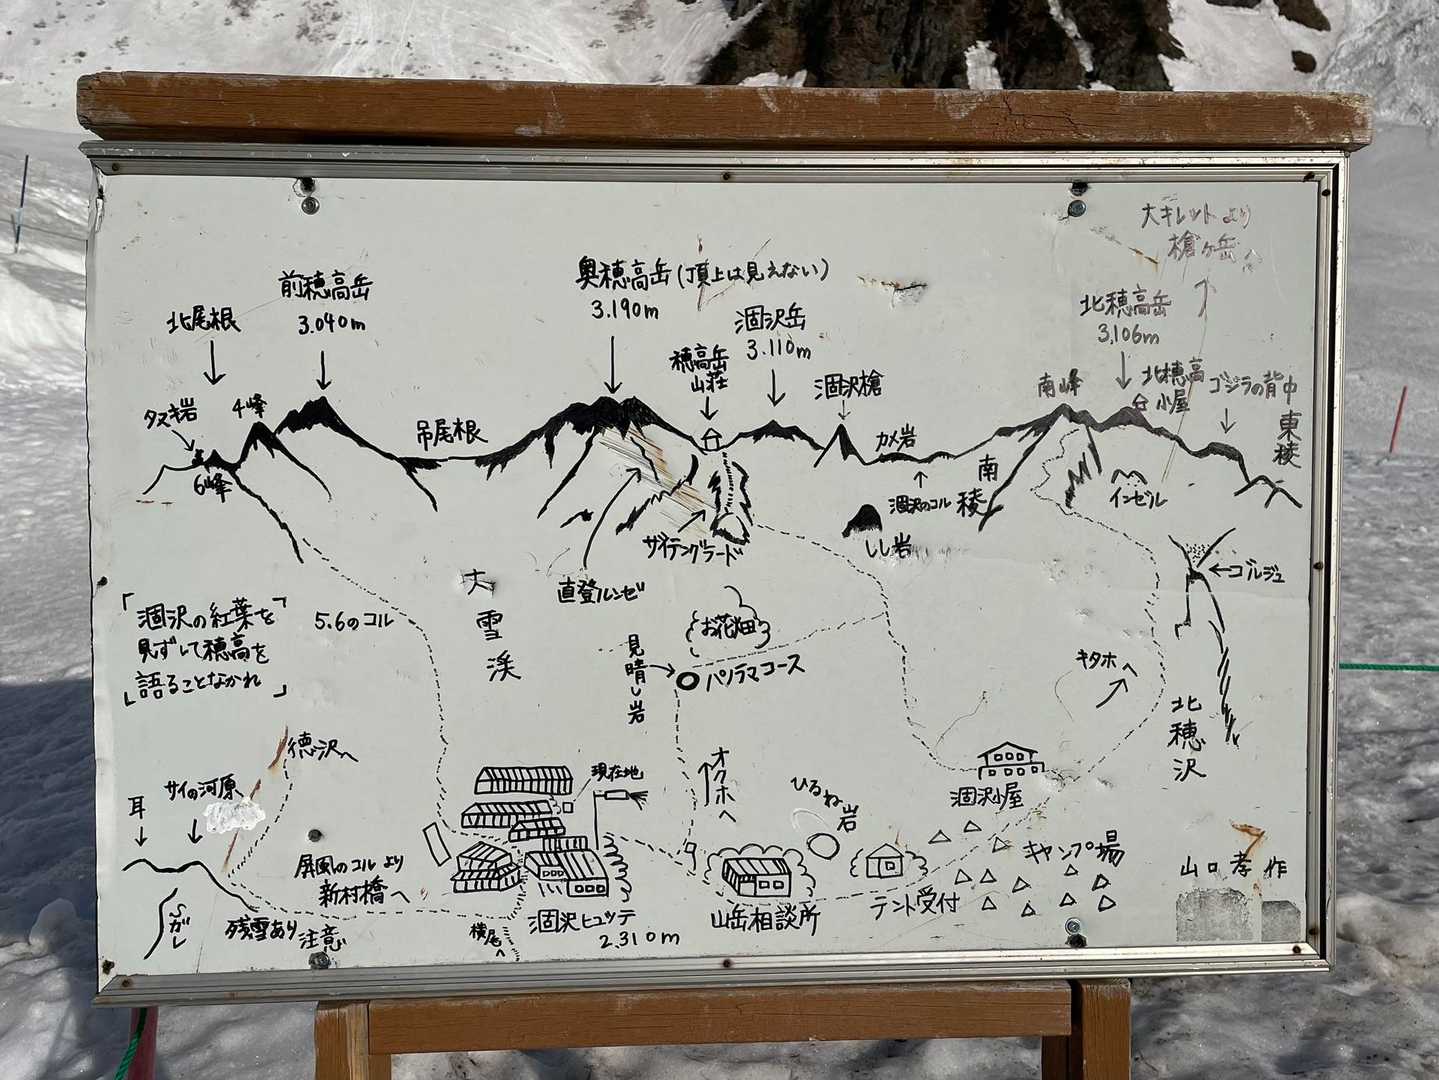 大キレットより
槍ヶ岳へ
前穂高岳
3.040m
奥穂高岳(頂上は見えない)
3.190m
涸沢岳
3.110m
北穂高岳
3,106m
北尾根
穂高岳
山荘
涸沢槍
南峰
北穂高
小屋
ゴジラの背中
東稜
タヌキ岩
4峰
吊尾根
カメ岩
6峰
涸沢のコル
南稜
インゼル
ザイテングラード
しし岩
ゴルジュ
直登ルンゼ
大雪渓
「涸沢の紅葉を
見ずして穂高を
語ることなかれ」
5.6のコル
お花畑
見晴し岩
パノラマコース
キタホへ
北穂沢
徳沢へ
現在地
オクホへ
涸沢小屋
耳
サイの河原
ひるね岩
屏風のコルより
新村橋へ
キャンプ場
山口孝作
涸沢ヒュッテ
2.310m
山岳相談所
テント受付
残雪あり注意
横尾へ